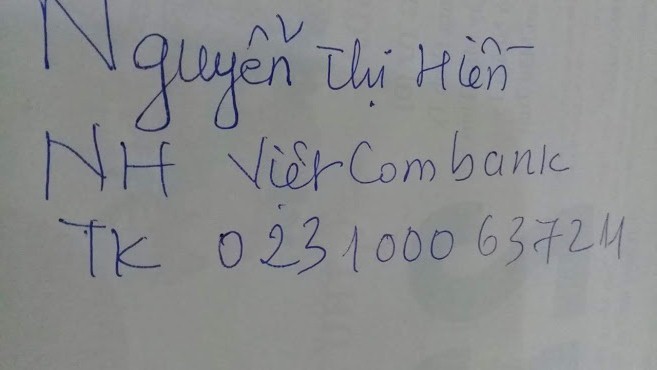 Nguyễn Thị Hiền
NH Việt Combank
TK 0231000637211